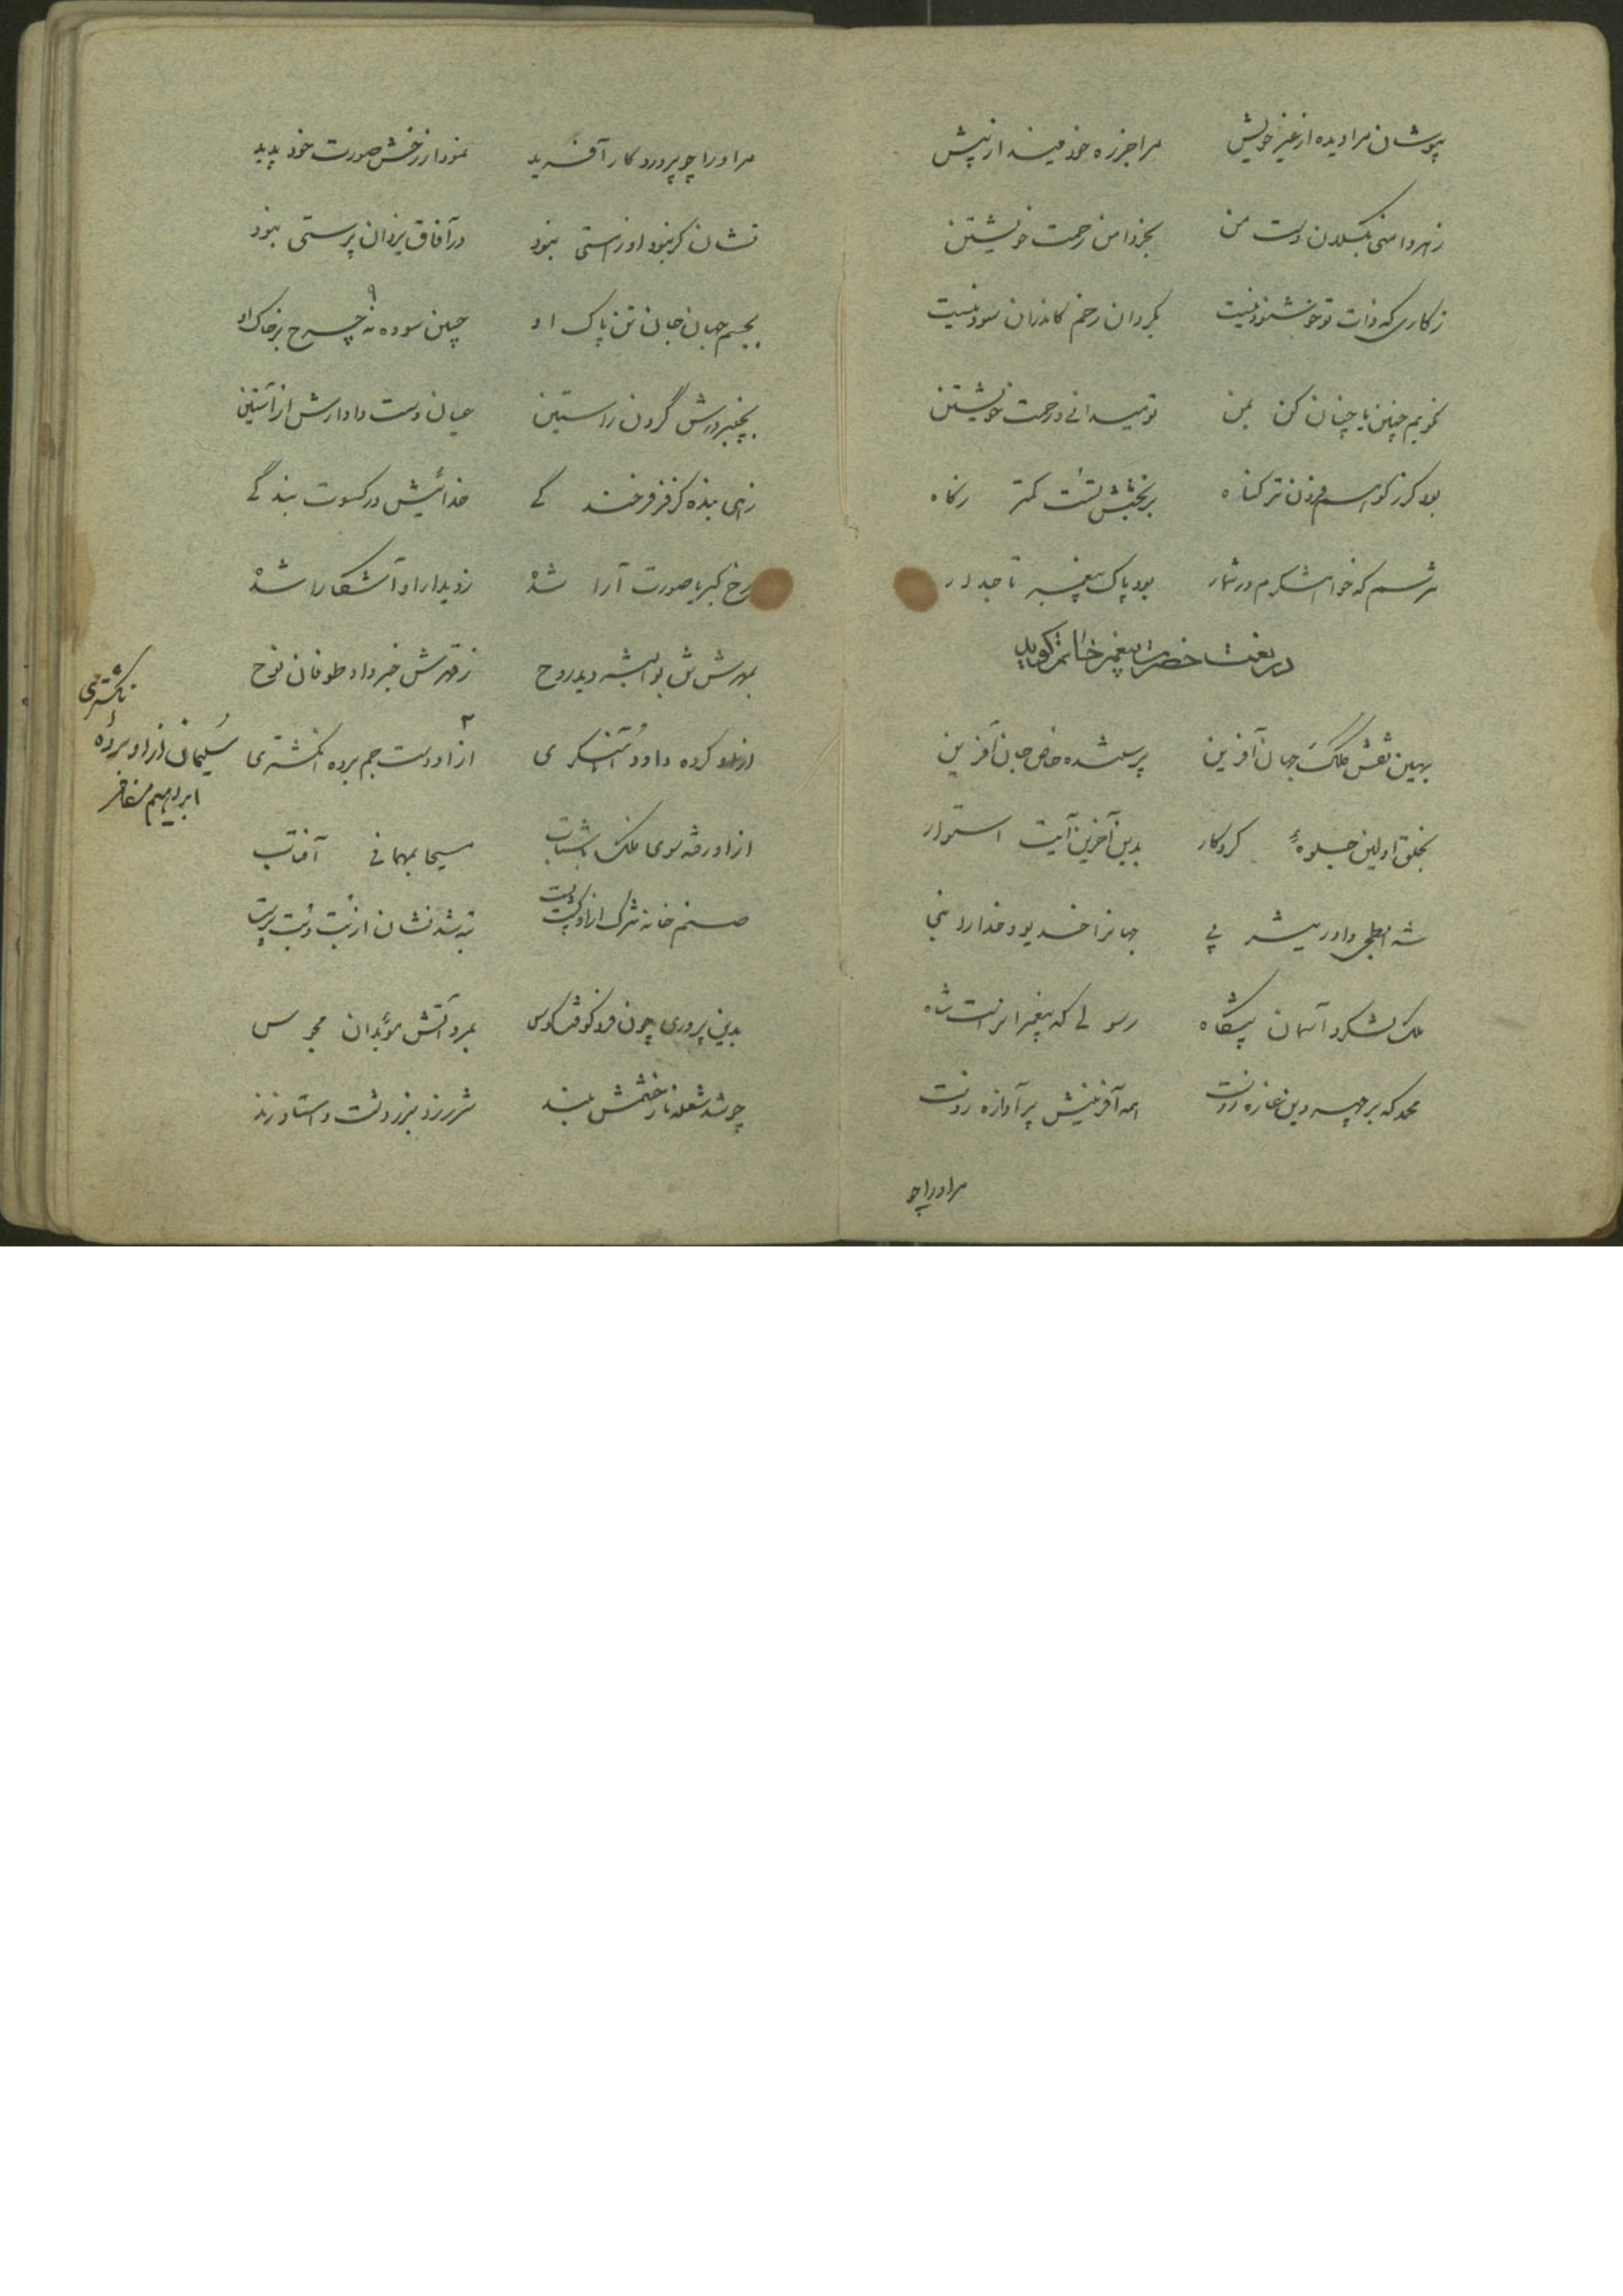 بپوشان مرا دیده از غیر خویش مرا جز ره خود میند از پیش
ز هر دامنی بگسلان دست من بجز دامن رحمت خویشتن
ز کاری که ذات تو خوشنود نیست بگردان رخم کاندران سود نیست
نگویم چنین یا چنان کن بمن تو میدانی و رحمت خویشتن
بود گر ز کوهم فزون تر گناه بر بخشش تست کمتر ز کاه
شرسم که خواهشگرم در شمار بود پاک پیغمبر تاجدار
در نعت حضرت پیغمبر خاتم گوید
بهین نقش کلک جهان آفرین پرستنده خاص جهان آفرین
بخلق اولین جلوهٔ کردگار بدین آخرین آیت استوار
شه ابطحی داور یثربی جهانرا خدیو و خدا را نبی
ملک لشکر و آسمان پیشگاه رسولی که پیغمبرانراست شاه
محمد که بر چهر دین غازه زوست همه آفرینش پر آوازه زوست
مر او را چو
مر او را چو پروردگار آفرید نمود از رخش صورت خود پدید
نشان گر نبود او ز هستی نبود در آفاق یزدان پرستی نبود
بجسم جهان جان تن پاک او جبین سوده نه چرخ بر خاک او
۹
بچنبر درش گردن راستین عیان دست دادارش از آستین
زهی بنده کز فر فرخندگی خدائیش در کسوت بندگی
رخ کبریا صورت آرا شد ز دیدار او آشکارا شد
بمهرش تن بوالبشر دید روح ز قهرش خبر داد طوفان نوح
از او کرده داود آهنگری از او دست جم برده انگشتری
۲
سلیمان از او برده انگشتری
ابراهیم مظفر
از او رفته سوی فلک باشتاب مسیحا بمهمانی آفتاب
صنم خانه شرک از او گشت پست تبه شد نشان از بت و بت پرست
بدین پروری چون فرو کوفت کوس بمرد آتش موبدان مجوس
چو شد شعله نار خشمش بلند شرر زد بزردشت و استا و زند